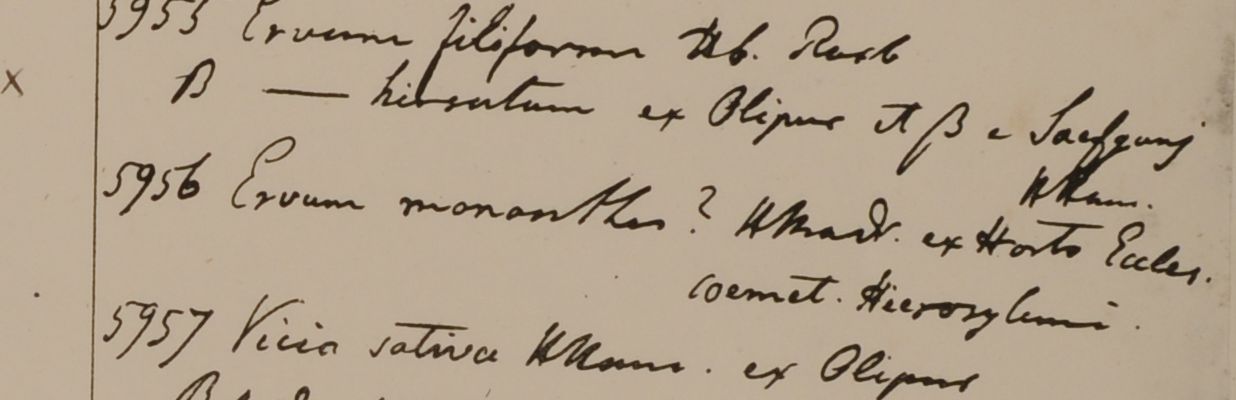 5955 Ervum filiforme Hb. Roxb
x β — hirsutum ex Olipur et β e Saefgunj
HHam.
5956 Ervum monanthos? HMadr. ex Horto Eccles.
coemet. Hierosylemi.
5957 Vicia sativa HHam. ex Olipur
β